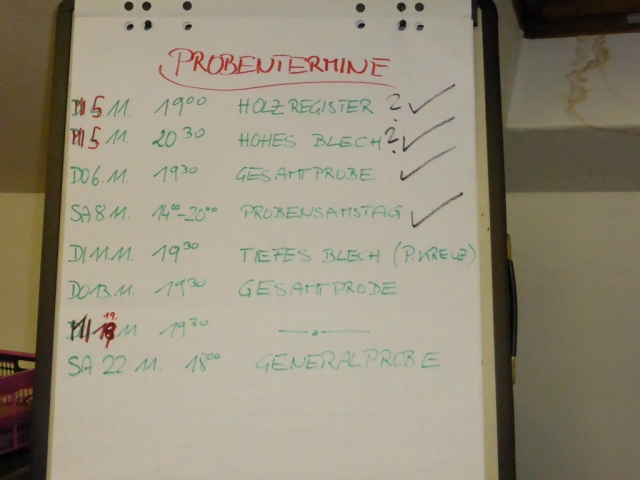 PROBENTERMINE
MI 5 11. 19⁰⁰ HOLZREGISTER ?
MI 5 11. 20³⁰ HOHES BLECH ?
DO 6. 11. 19³⁰ GESAMTPROBE
SA 8 11. 14⁰⁰-20⁰⁰ PROBENSAMSTAG
DI 11.11. 19³⁰ TIEFES BLECH (P. KREUZ)
DO 13.11. 19³⁰ GESAMTPROBE
MI 19. 11. 19³⁰ —"—
SA 22 11. 18⁰⁰ GENERALPROBE